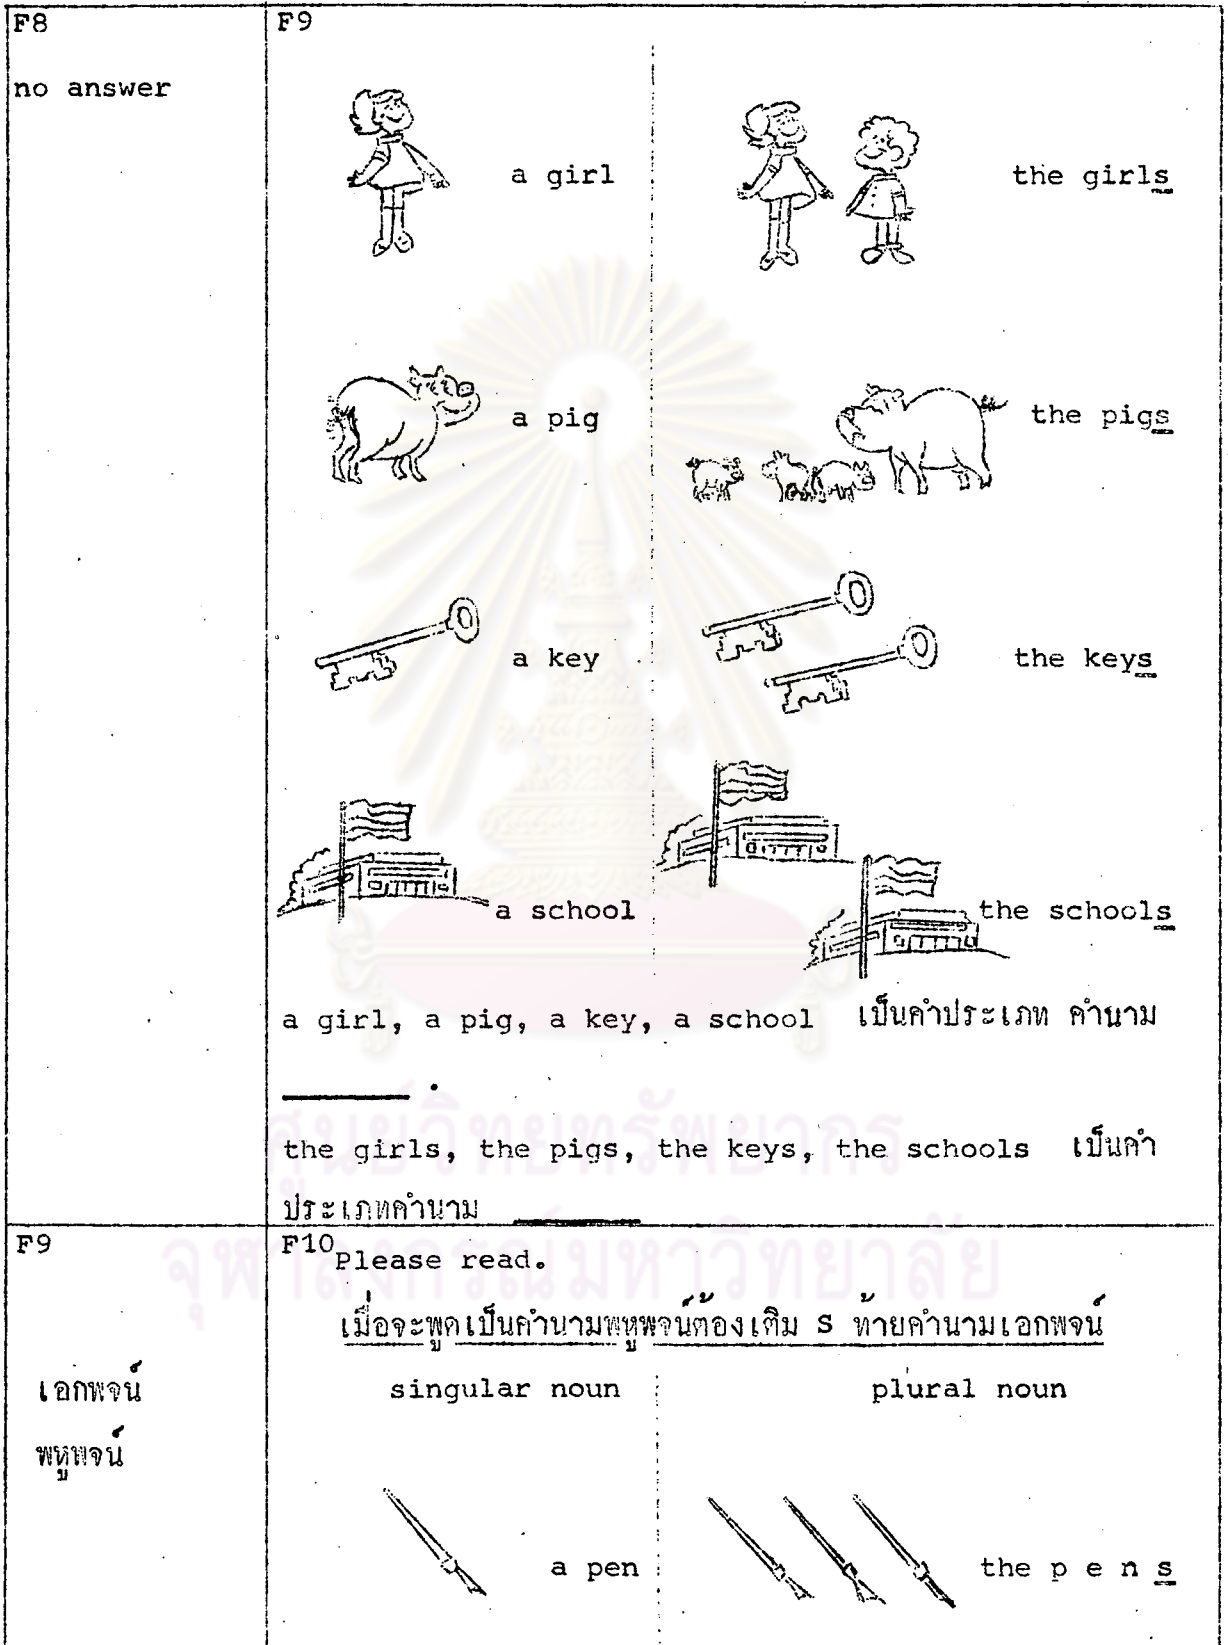 F8
F9
no answer
a girl
the girls
a pig
the pigs
a key
the keys
a school
the schools
a girl, a pig, a key, a school เป็นคำประเภท คำนาม
_______ .
the girls, the pigs, the keys, the schools เป็นคำ
ประเภทคำนาม _______
F9
F10
Please read.
เมื่อจะพูดเป็นคำนามพหูพจน์ต้องเติม s ท้ายคำนามเอกพจน์
เอกพจน์
singular noun
plural noun
พหูพจน์
a pen
the p e n s
ศูนย์วิทยทรัพยากร
จุฬาลงกรณ์มหาวิทยาลัย